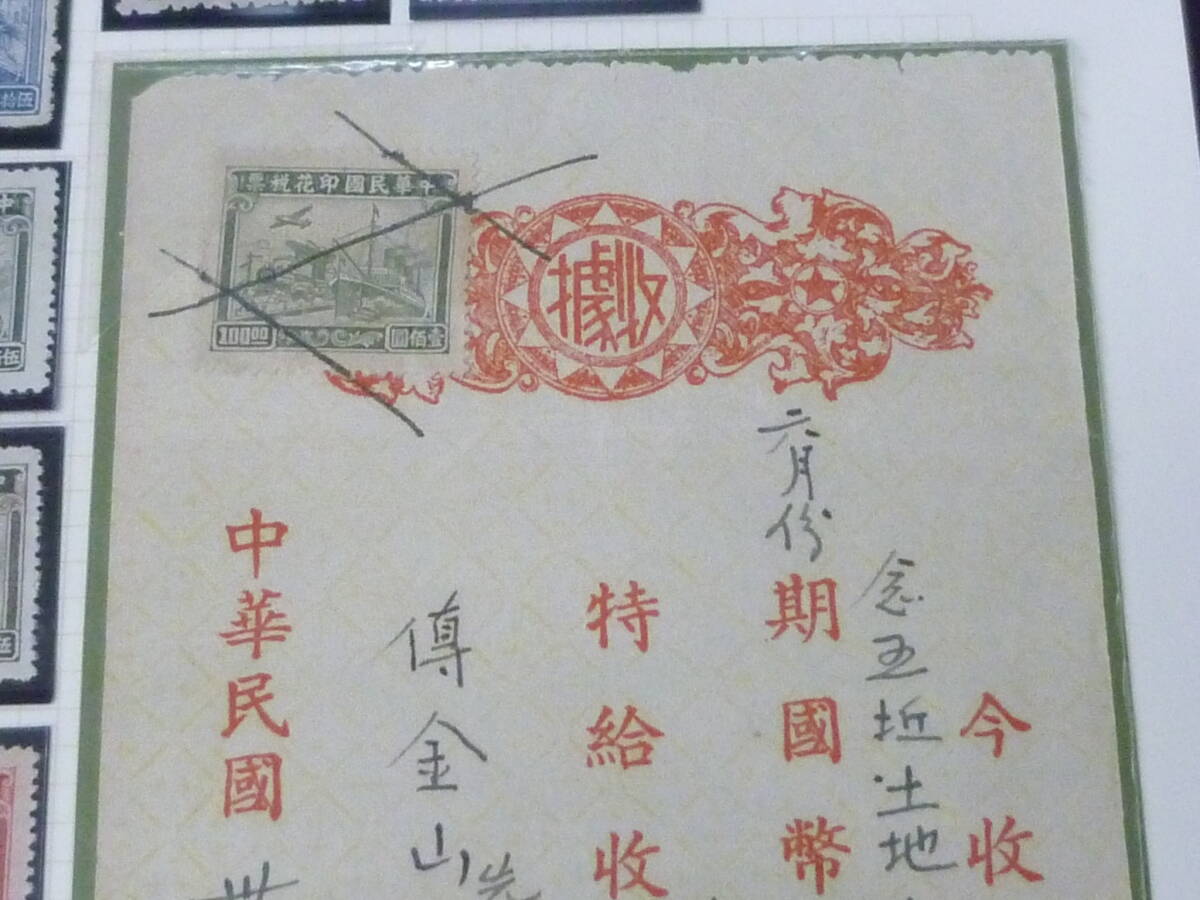 中華民國印花稅票
100.00
壹佰圓
收據
今收
念五坵土地
六月份
期國幣
特給收
傅金山先
中華民國
卅